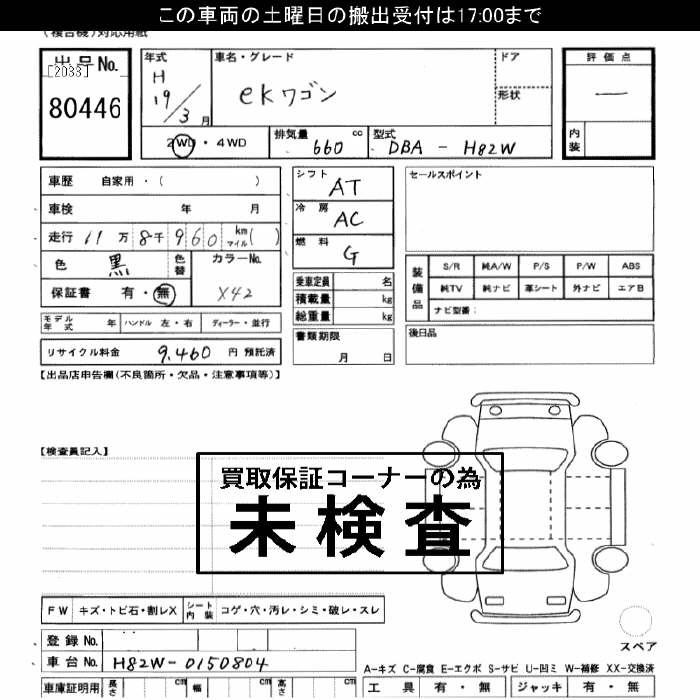 この車両の土曜日の搬出受付は17:00まで
(複合機)対応用紙
出品No.
[2033]
80446
年式
H
19/3月
車名・グレード
ekワゴン
ドア
形状
評価点
―
内装
2WD・4WD
排気量 660 cc
型式 DBA - H82W
車歴 自家用・( )
車検 年 月
走行 11万8千960 km マイル( )
色 黒
色替
カラーNo.
X42
保証書 有・無
シフト
AT
冷房
AC
燃料
G
乗車定員 名
積載量 kg
総重量 kg
セールスポイント
装備品
S/R 純A/W P/S P/W ABS
純TV 純ナビ 革シート 外ナビ エアB
ナビ型番:
モデル年式 年 ハンドル 左・右 ディーラー・並行
書類期限
月 日
後日品
リサイクル料金 9,460 円 預託済
【出品店申告欄(不良箇所・欠品・注意事項等)】
【検査員記入】
買取保証コーナーの為
未検査
FW キズ・トビ石・割レX シート内装 コゲ・穴・汚レ・シミ・破レ・スレ
登録No.
車台No. H82W-0150804
スペア
A-キズ C-腐食 E-エクボ S-サビ U-凹ミ W-補修 XX-交換済
車庫証明用 長さ cm 幅 cm 高さ cm
工具 有・無 ジャッキ 有・無